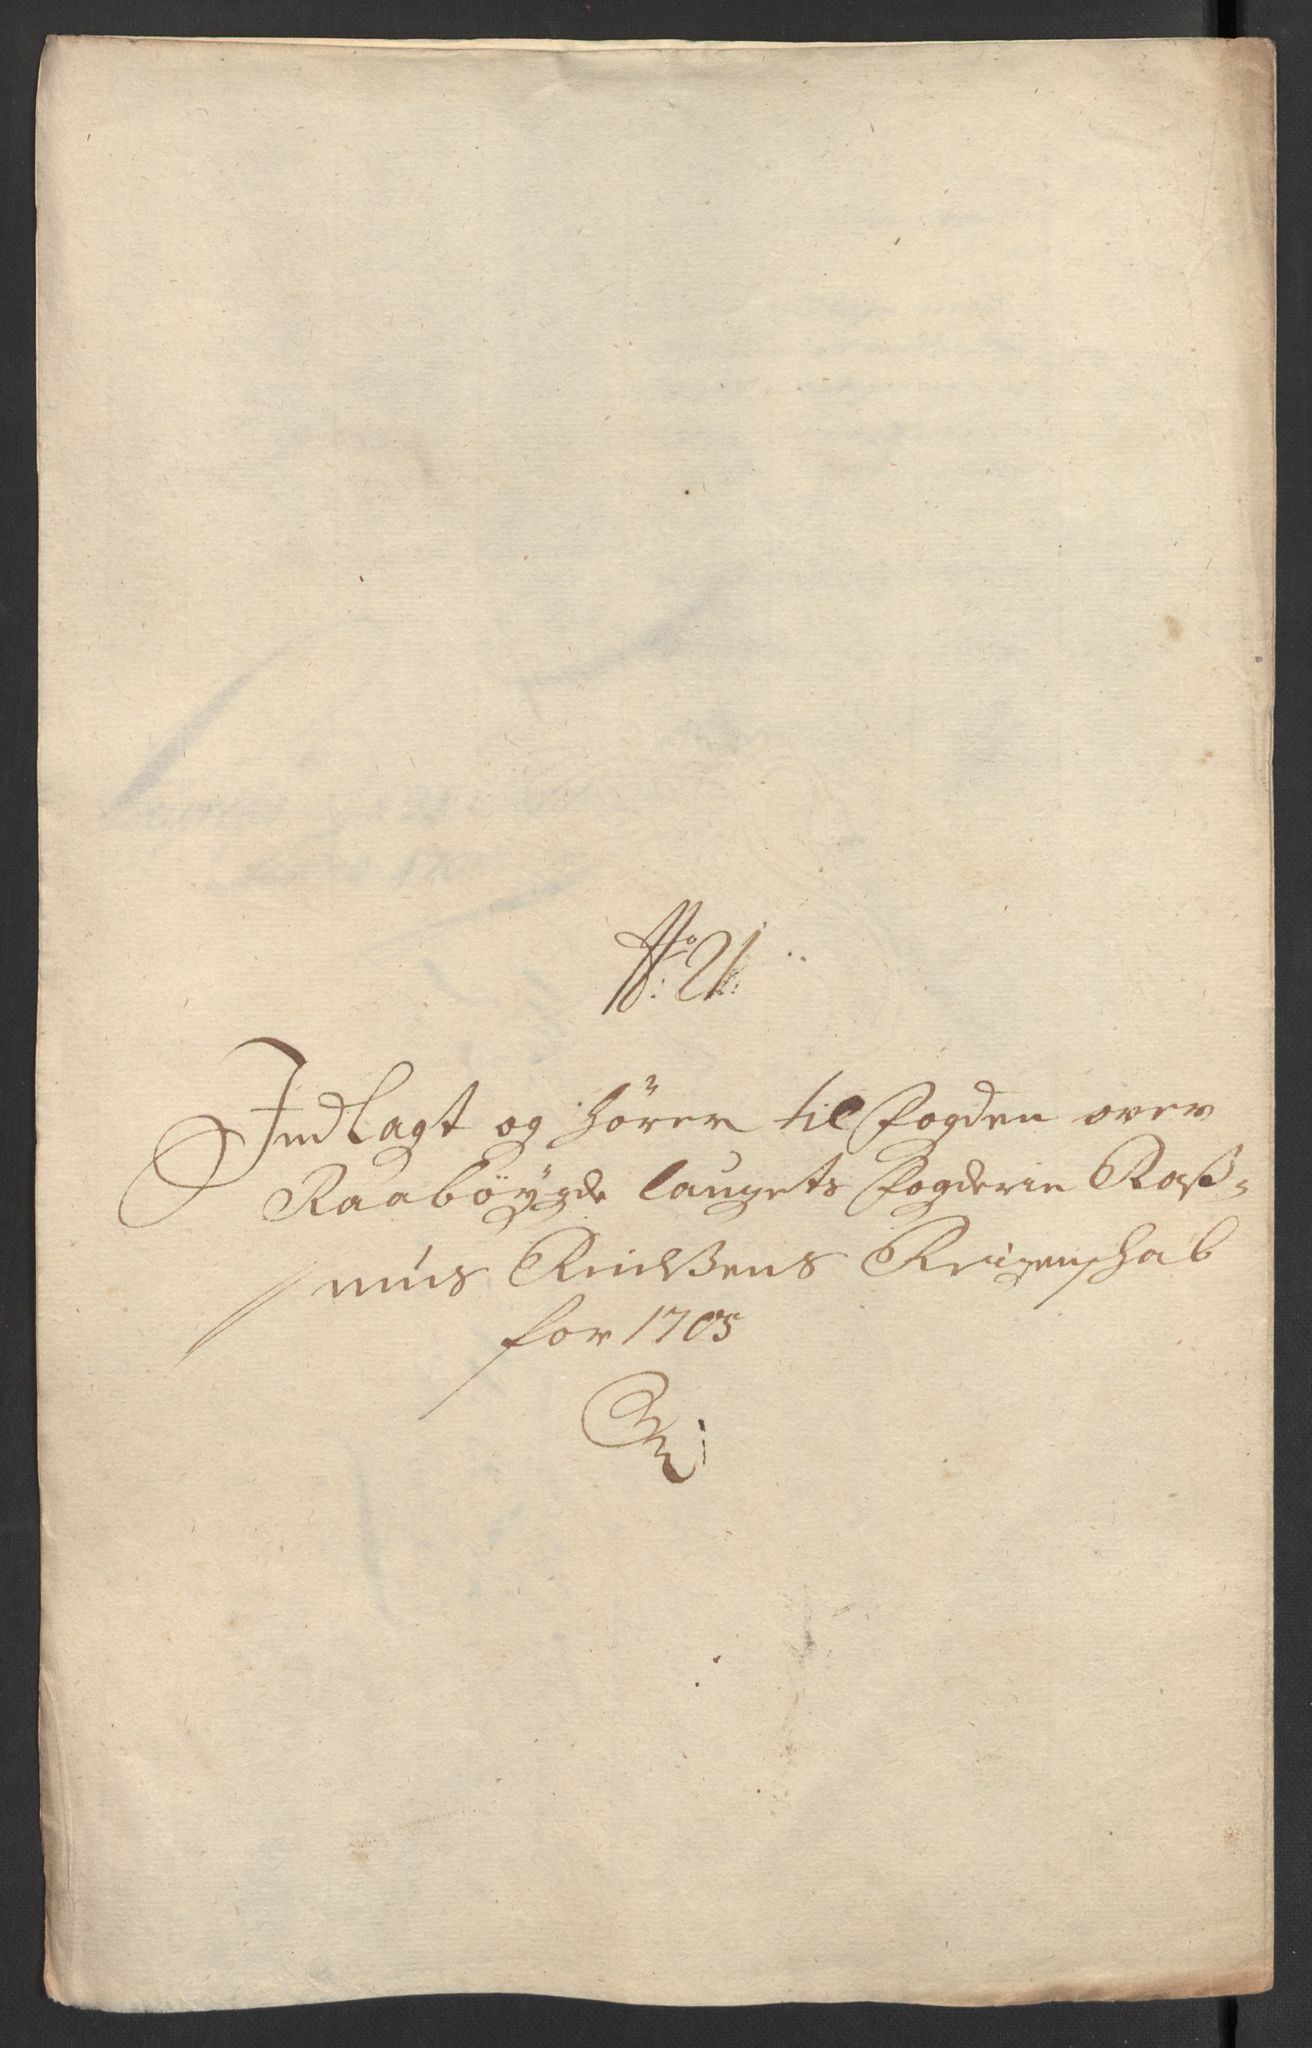 No: 21.
Indlagt og hörer til Fogden over
Raaböygde laugets Fogderie Raß-
mus Knudßens Reigenschab
for 1705